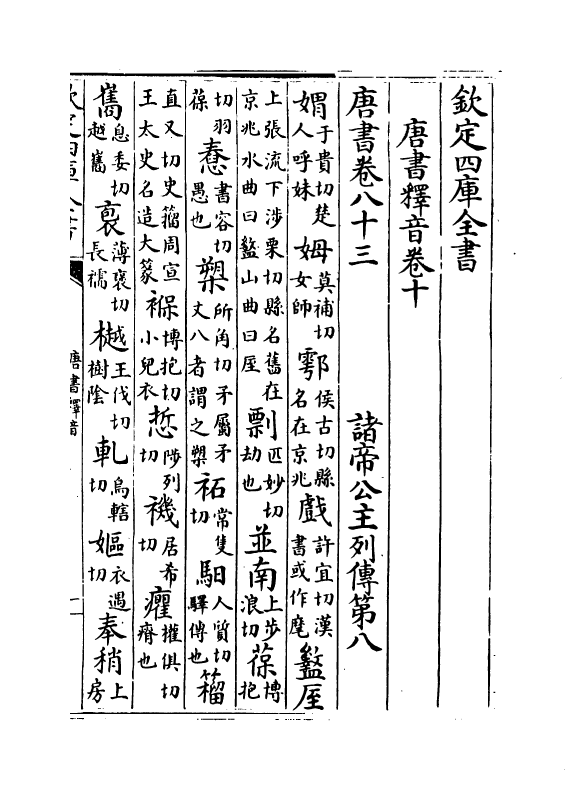 欽定四庫全書
唐書釋音卷十
唐書卷八十三　諸帝公主列傳第八
媦于貴切楚人呼妹姆莫補切女師鄠侯古切縣名在京兆戲許宜切漢書或作麾盩厔
上張流下涉栗切縣名舊在京兆水曲曰盩山曲曰厔剽匹妙切劫也並南上步浪切葆博抱
切羽葆惷書容切愚也槊所角切矛屬矛丈八者謂之槊祏常隻切馹人質切驛傳也籀
直又切史籀周宣王太史名造大篆褓博抱切小兒衣悊陟列切禨居希切癯權俱切瘠也
巂息委切越巂裒薄褒切長襦樾王伐切樹陰軋烏轄切嫗衣遇切奉稍上房
唐書釋音
一